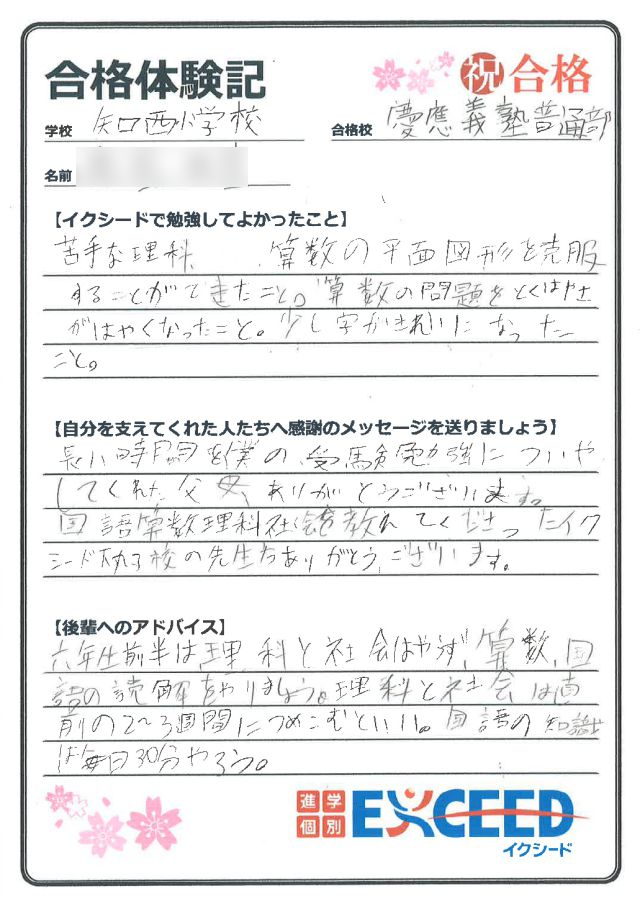 合格体験記
祝 合格
学校 矢口西小学校
合格校 慶應義塾普通部
名前
【イクシードで勉強してよかったこと】
苦手な理科 算数の平面図形を克服
することができたこと。算数の問題をとくはやさ
がはやくなったこと。少し字がきれいになった
こと。
【自分を支えてくれた人たちへ感謝のメッセージを送りましょう】
長い時間を僕の受験勉強についや
してくれた父母、ありがとうございます。
国語算数理科社会を教えてくださったイク
シード下丸子校の先生方ありがとうございます。
【後輩へのアドバイス】
六年生前半は理科と社会はやらず、算数、国
語の読解をやりましょう。理科と社会は直
前の2〜3週間につめこむといい。国語の知識
は毎日30分やろう。
進学
個別 EXCEED
イクシード